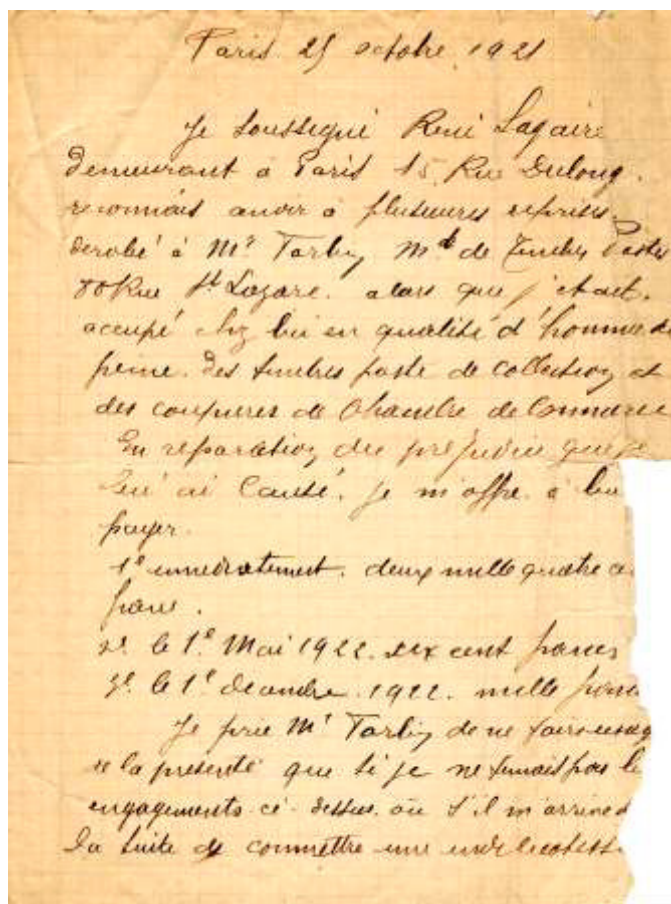 Paris 25 octobre 1921
Je soussigné René Lagaire
demeurant à Paris 15 Rue Dulong.
reconnais avoir à plusieures reprises.
derobé à Mr Tarby Md de Timbres Postes
80 Rue St Lazare. alors que j'etait.
occupé chez lui en qualité d'homme de
peine. des timbres poste de collection et
des coupures de Chambre de Commerce
En reparation du préjudice que je
lui ai causé. je m'offre à lui
payer.
1º immediatement. deux mille quatre
francs.
2º. le 1º Mai 1922. six cent francs
3º. le 1º decembre. 1922. mille francs
Je prie Mr Tarby de ne faire usag
de la presente que si je ne tenais pas le
engagements ci-dessus. ou s'il m'arrive
la suite de commettre une indelicatess